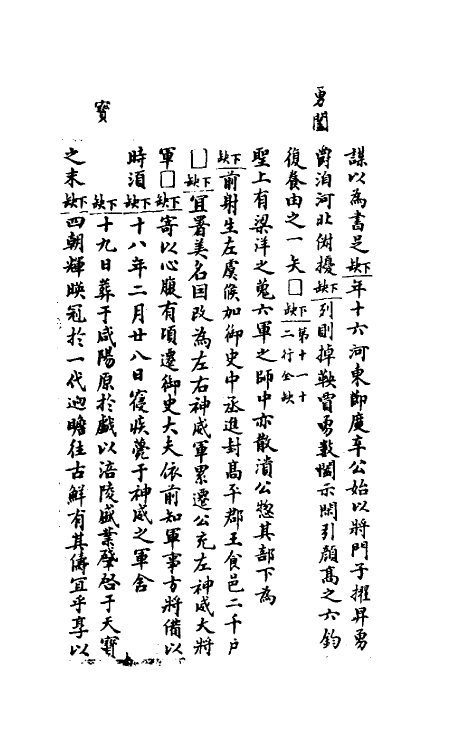 勇闔
謀以為書足下缺年十六河東節度辛公始以將門子擢昇勇
爵洎河北俶擾下缺列則掉鞅冐勇敷闔示閑引顏髙之六鈞
復養由之一矢囗下缺第十一十二行全缺
聖上有梁洋之蒐六軍之師中亦散潰公惣其部下為
下缺前射生左虞候加御史中丞進封髙平郡王食邑二千户
囗下缺宜署美名因改為左右神威軍累遷公充左神威大將
軍囗下缺寄以心腹有頃遷御史大夫依前知軍事方將備以
時須下缺十八年二月廿八日寢疾薨于神威之軍舍
下缺十九日葬于咸陽原於戲以涪陵盛業肇啓于天寶
寳
之末下缺四朝輝暎冠於一代逈瞻往古鮮有其儔宜乎享以